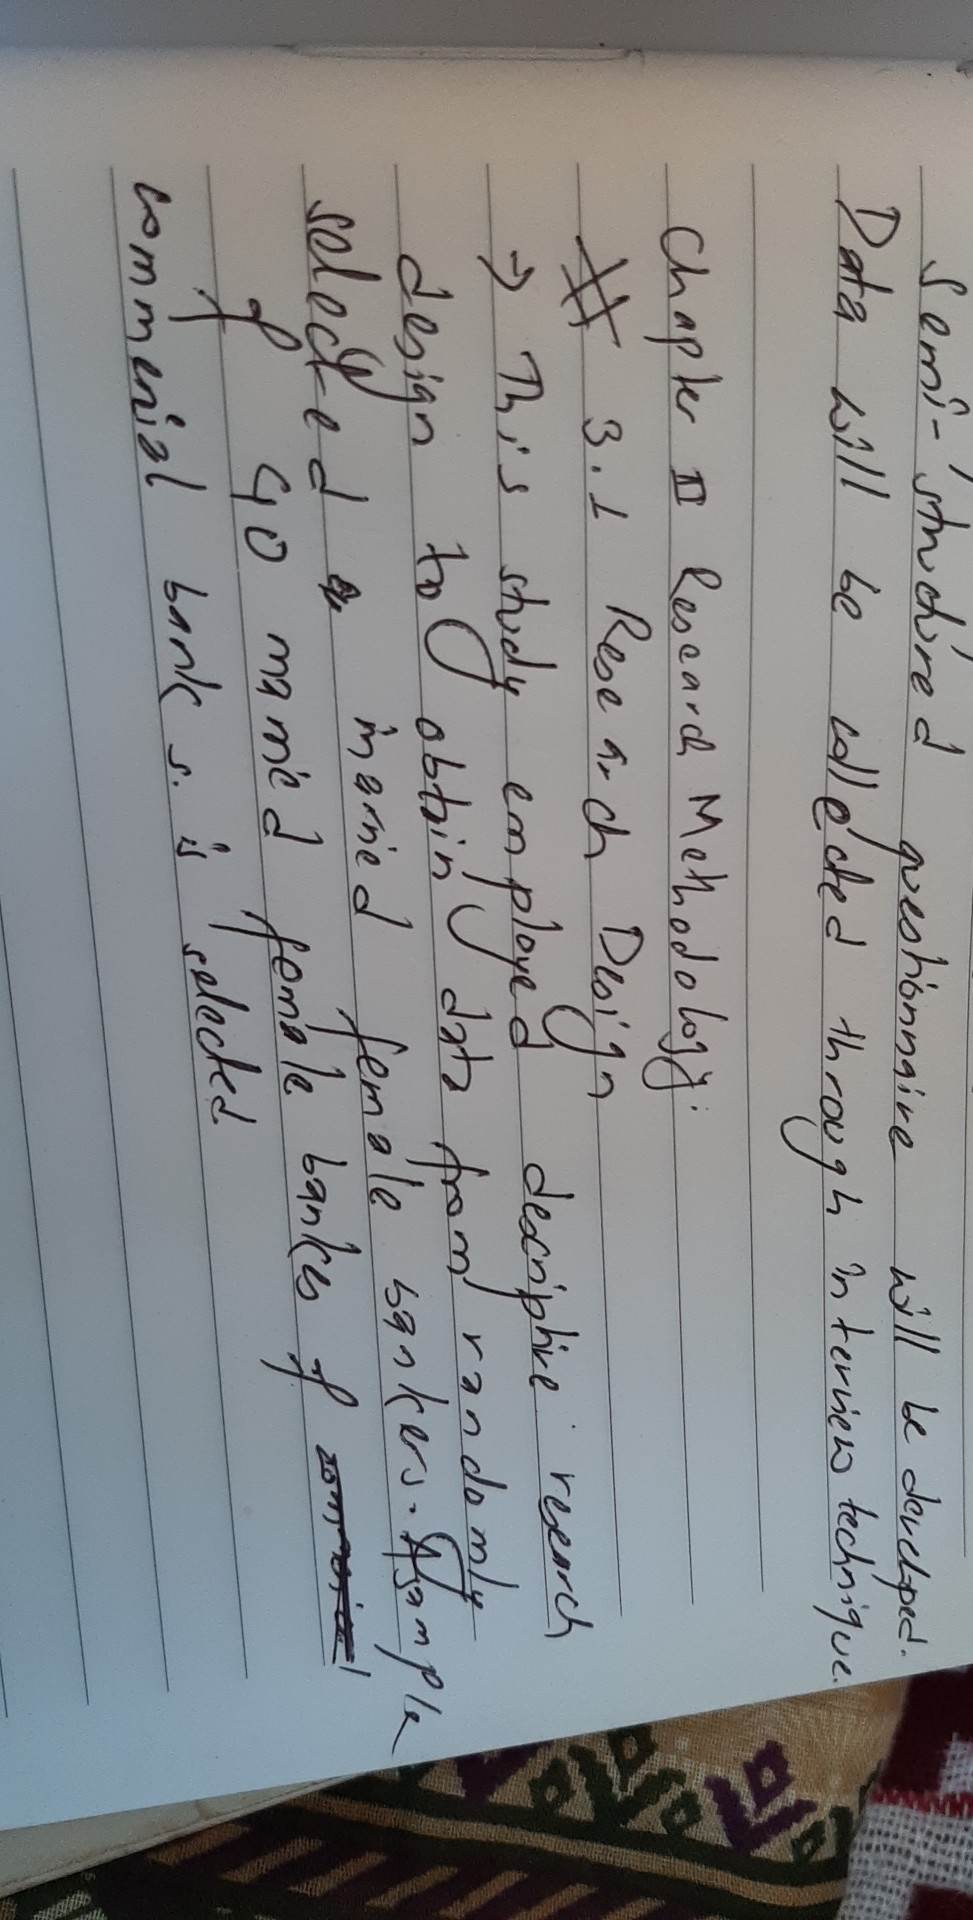 Semi-structured questionnaire will be developed.
Data will be collected through interview technique.
Chapter II Research Methodology:
# 3.1 Research Design
→ This study employed descriptive research
design to obtain data from randomly
selected married female bankers. A sample
of 40 married female bankes of
commercial banks. is selected